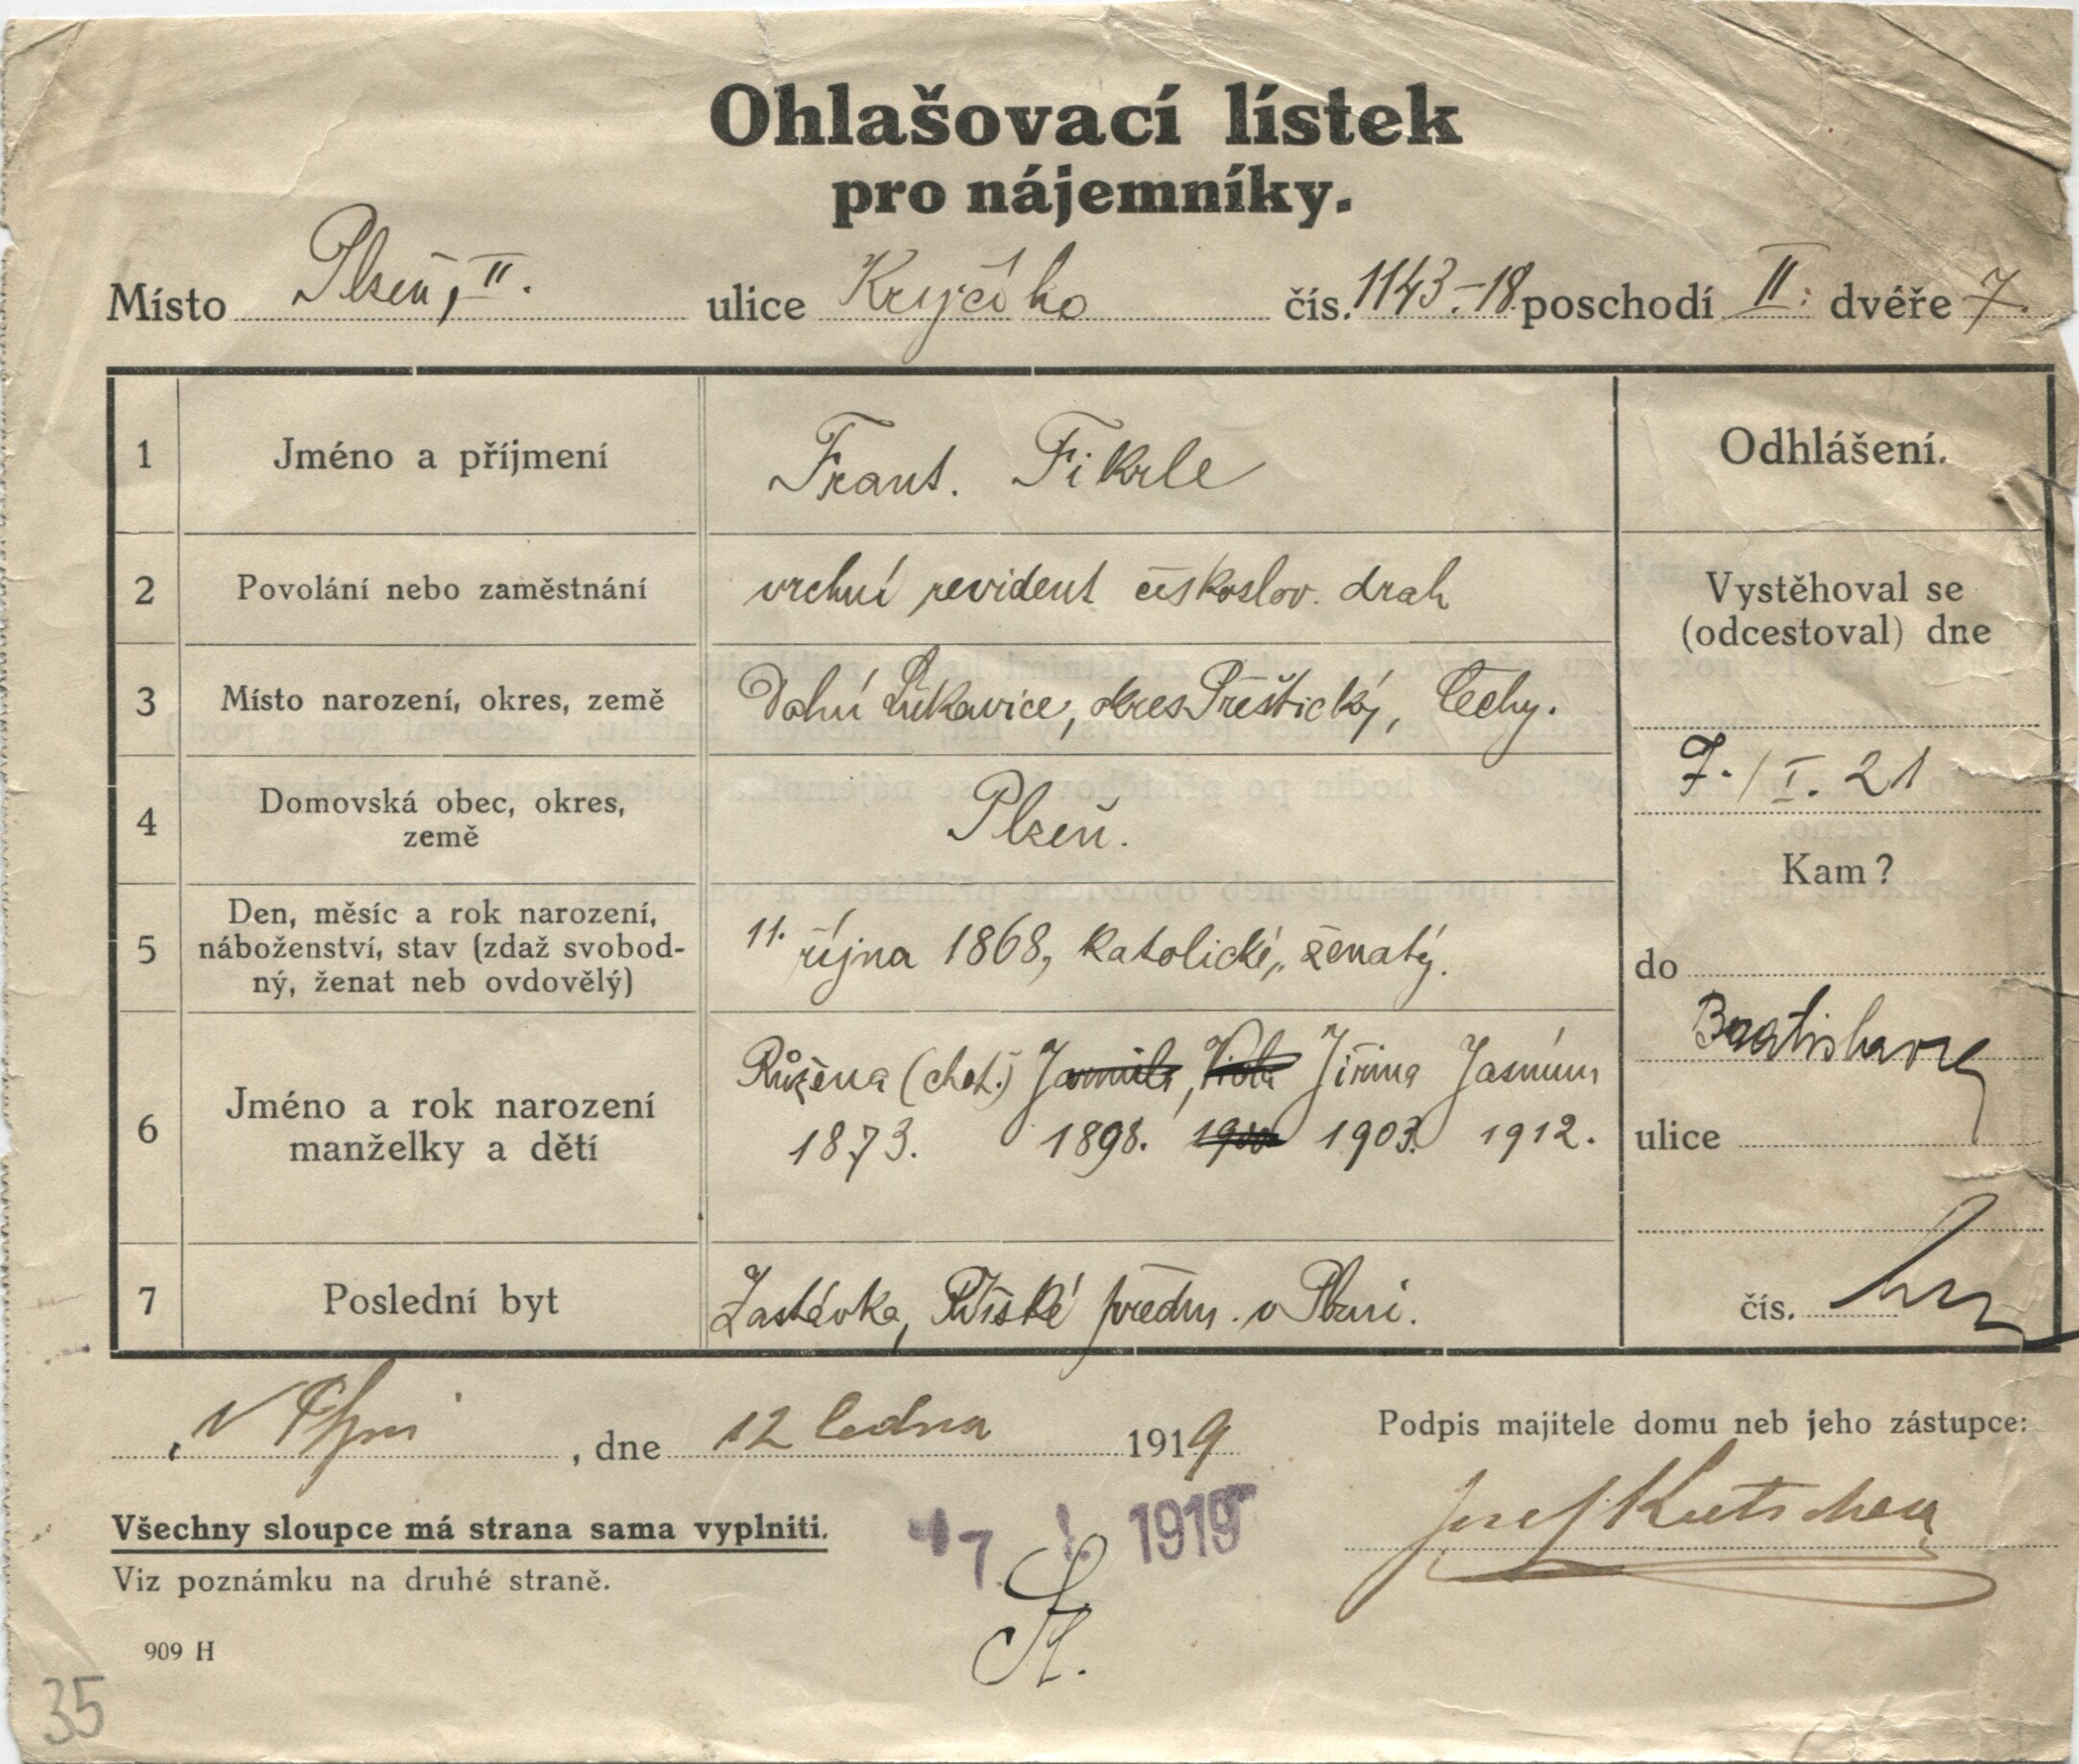 Ohlašovací lístek
pro nájemníky.
Místo Plzeň, II. ulice Krejčího čís. 1143.-18. poschodí II. dvéře 7.
1 Jméno a příjmení Frant. Fikrle
2 Povolání nebo zaměstnání vrchní revident českoslov. drah
3 Místo narození, okres, země Dolní Lukavice, okres Přeštický, Čechy.
4 Domovská obec, okres,
země Plzeň.
5 Den, měsíc a rok narození,
náboženství, stav (zdaž svobod-
ný, ženat neb ovdovělý) 11. října 1868, katolické, ženatý.
6 Jméno a rok narození
manželky a dětí Růžena (chot.) Jarmila, Viola Jiřina Jasmína
1873. 1898. 1903. 1912.
7 Poslední byt Zastávka, předm. v Plzni.
Odhlášení.
Vystěhoval se
(odcestoval) dne
7./I. 21
Kam?
do
Bratislavy
ulice
čís.
v Plzni, dne 12 ledna 1919
Podpis majitele domu neb jeho zástupce:
Josef
Všechny sloupce má strana sama vyplniti.
Viz poznámku na druhé straně.
17. I. 1919
909 H
35